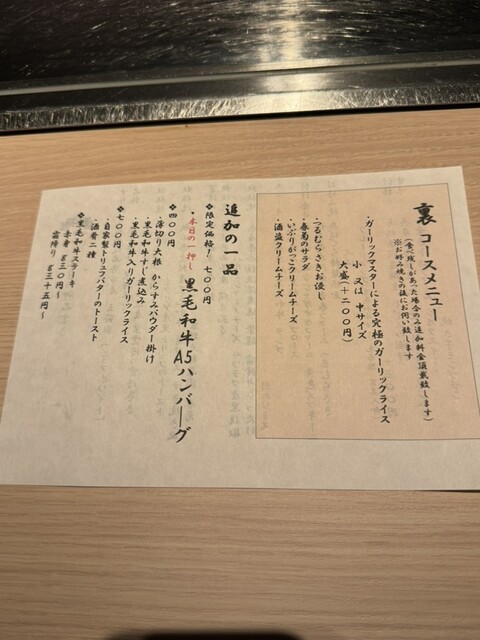 裏 コースメニュー
(食べ残しがあった場合のみ追加料金頂戴致します)
※お好み焼きの後にお伺い致します
・ガーリックマスターによる究極のガーリックライス
小 又は 中サイズ
大盛(+二〇〇円)
・つるむらさきお浸し
・春菊のサラダ
・いぶりがっこクリームチーズ
・酒盗クリームチーズ
追加の一品
❖限定価格!七〇〇円
・本日の一押し 黒毛和牛A5ハンバーグ
❖四〇〇円
・薄切り大根 からすみパウダー掛け
・黒毛和牛すじ煮込み
・黒毛和牛入りガーリックライス
❖七〇〇円
・酒肴二種
・自家製トリュフバターのトースト
❖黒毛和牛ステーキ
赤身 g三〇円〜
霜降り g三十五円〜